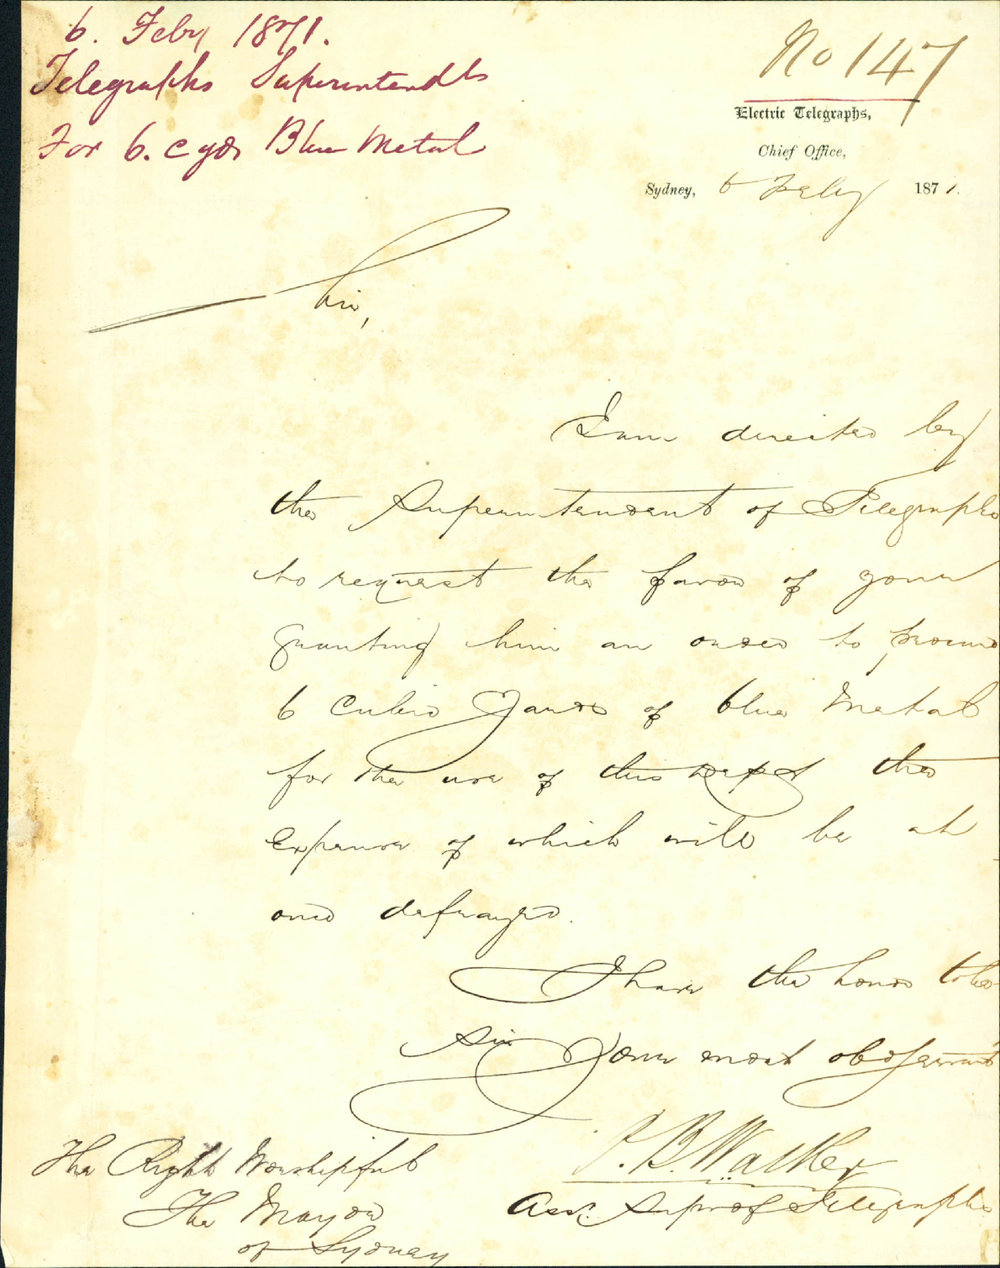 6. Feby 1871.
Telegraphs Superintendts
For 6. c yds Blue Metal
No 147
Electric Telegraphs,
Chief Office,
Sydney, 6 Feby 1871.
Sir,
I am directed by
the Superintendent of Telegraphs
to request the favor of your
granting him an order to procure
6 Cubic Yards of blue Metal
for the use of this Dept the
Expense of which will be at
once defrayed.
I have the honor to be
Sir
Your most obdt servant
J. B. Walker
Asst. Sup of Telegraphs
The Right Worshipful
The Mayor
of Sydney